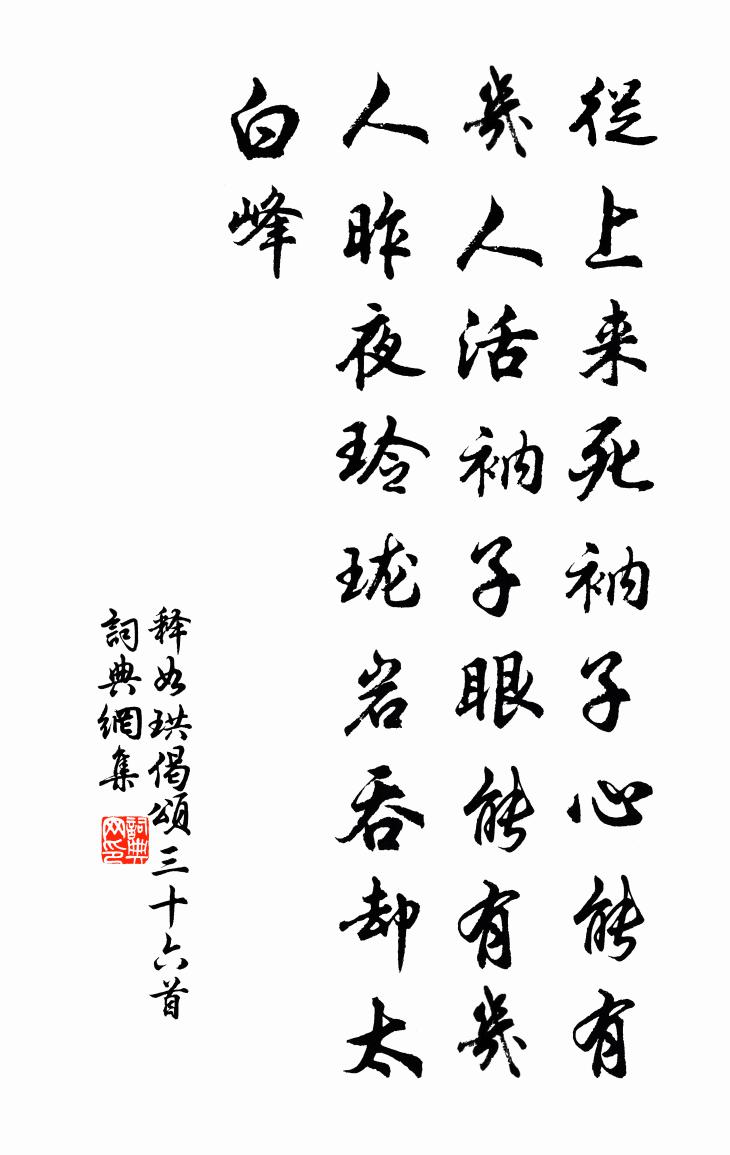 從上来死衲子心能有
幾人活衲子眼能有幾
人昨夜玲珑岩吞却太
白峰
释如珙偈頌三十六首
詞典網集
詞典
网印